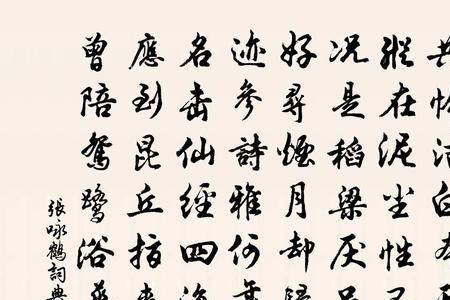 白
縱在泥尘性
况是稻粱厌
好尋煙月却
迹參詩雅何
名出仙經四
應到昆丘指
曾陪鴛鷺浴
張咏鶴詞